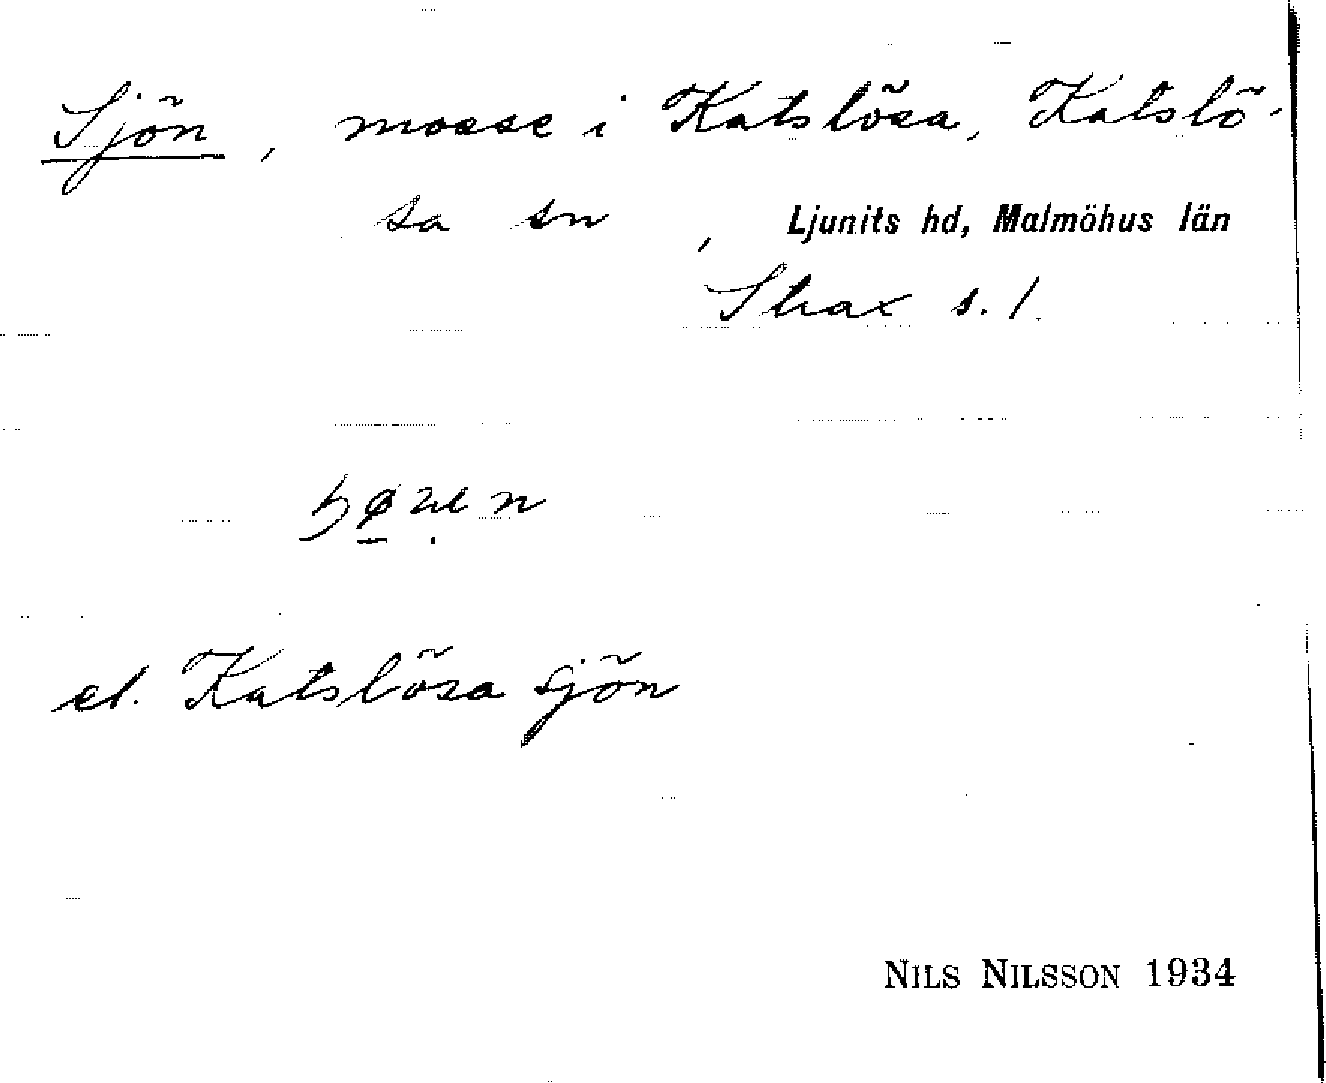 Sjön, mosse i Katslösa, Katslö-
sa sn, Ljunits hd, Malmöhus län
Skax s. 1.
el. Katslösa sjön
NILS NILSSON 1934